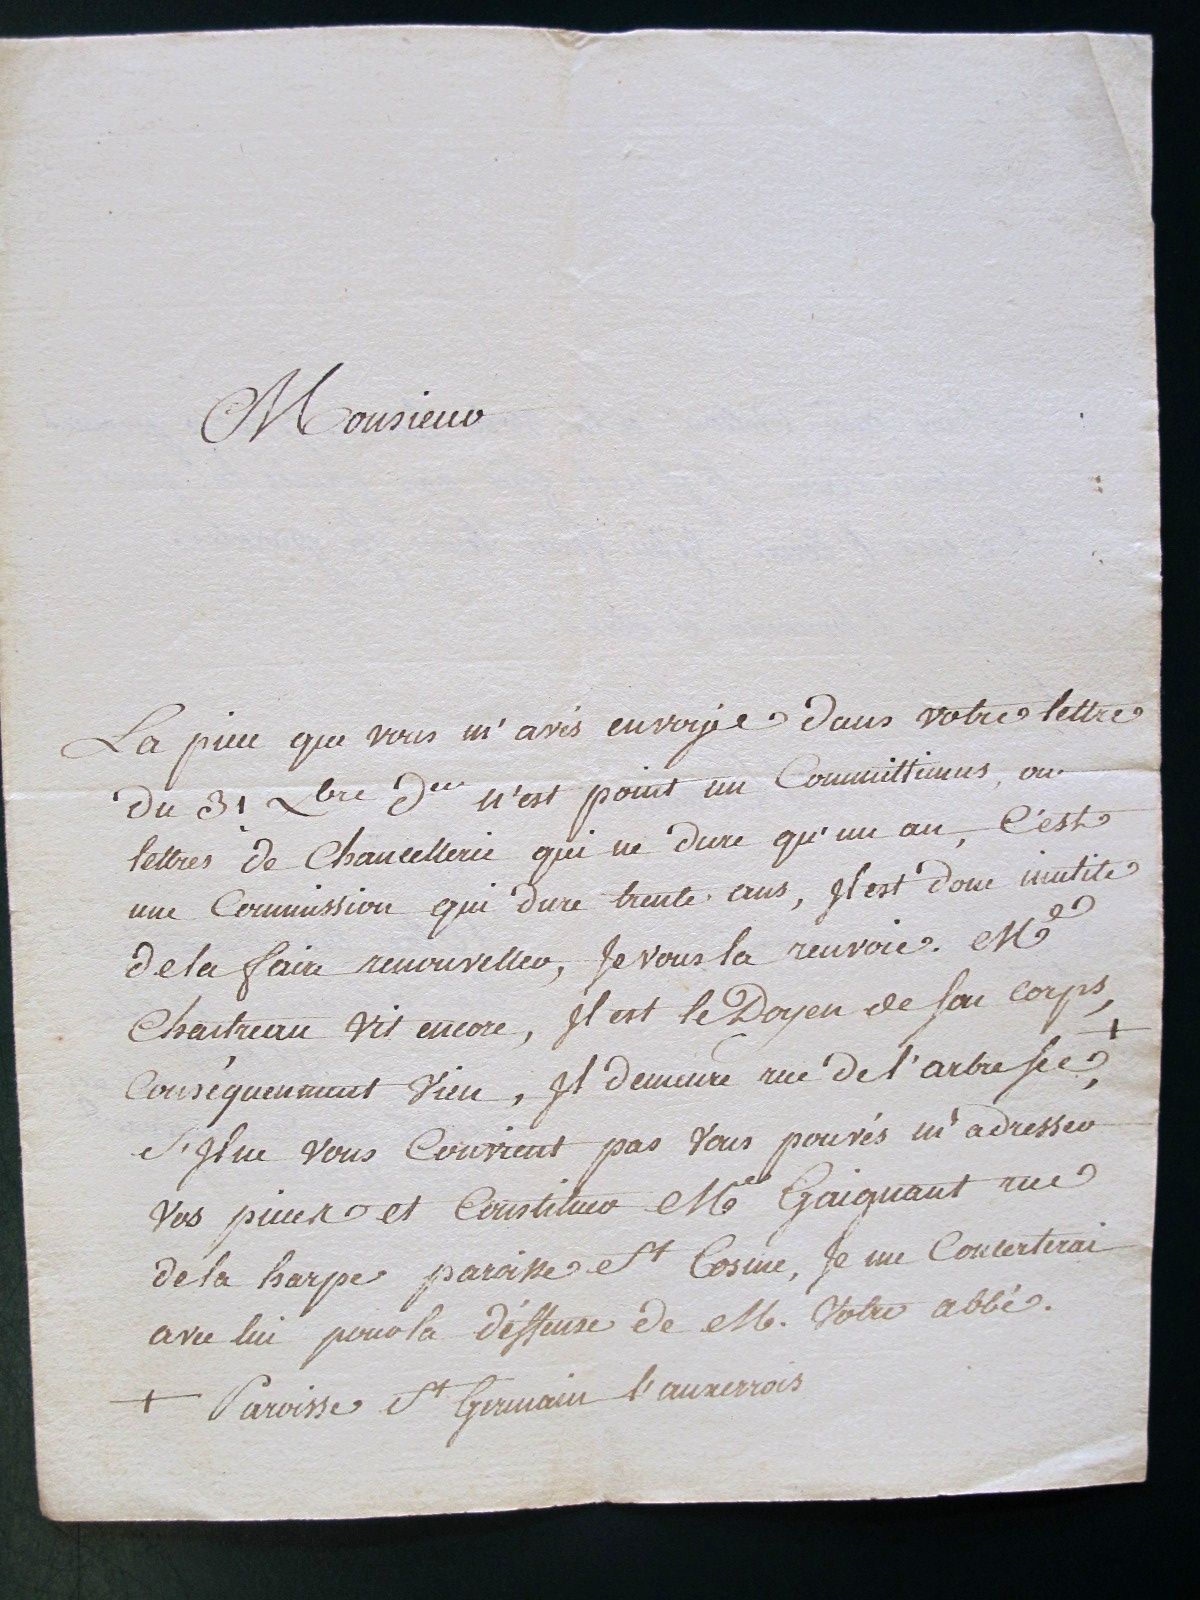 Monsieur
La piece que vous m'avés envoyée dans votre lettre
du 31 Xbre der n'est point un Committimus, ou
lettres de Chancellerie qui ne dure qu'un an, C'est
une Commission qui dure trente ans, Il est donc inutile
de la faire renouveller, Je vous la renvoie. Me
Chastreau vit encore, Il est le Doyen de son corps,
Conséquemment vieu, Il demeure rue de l'arbre sec, +
S'Il ne vous Convient pas vous pouvés m'adresser
vos pieces et Constituer Me Gaignant rue
de la harpe paroisse St Cosme, Je me Concerterai
avec lui pour la déffense de M. Votre abbé.
+ Paroisse St Germain l'auxerrois